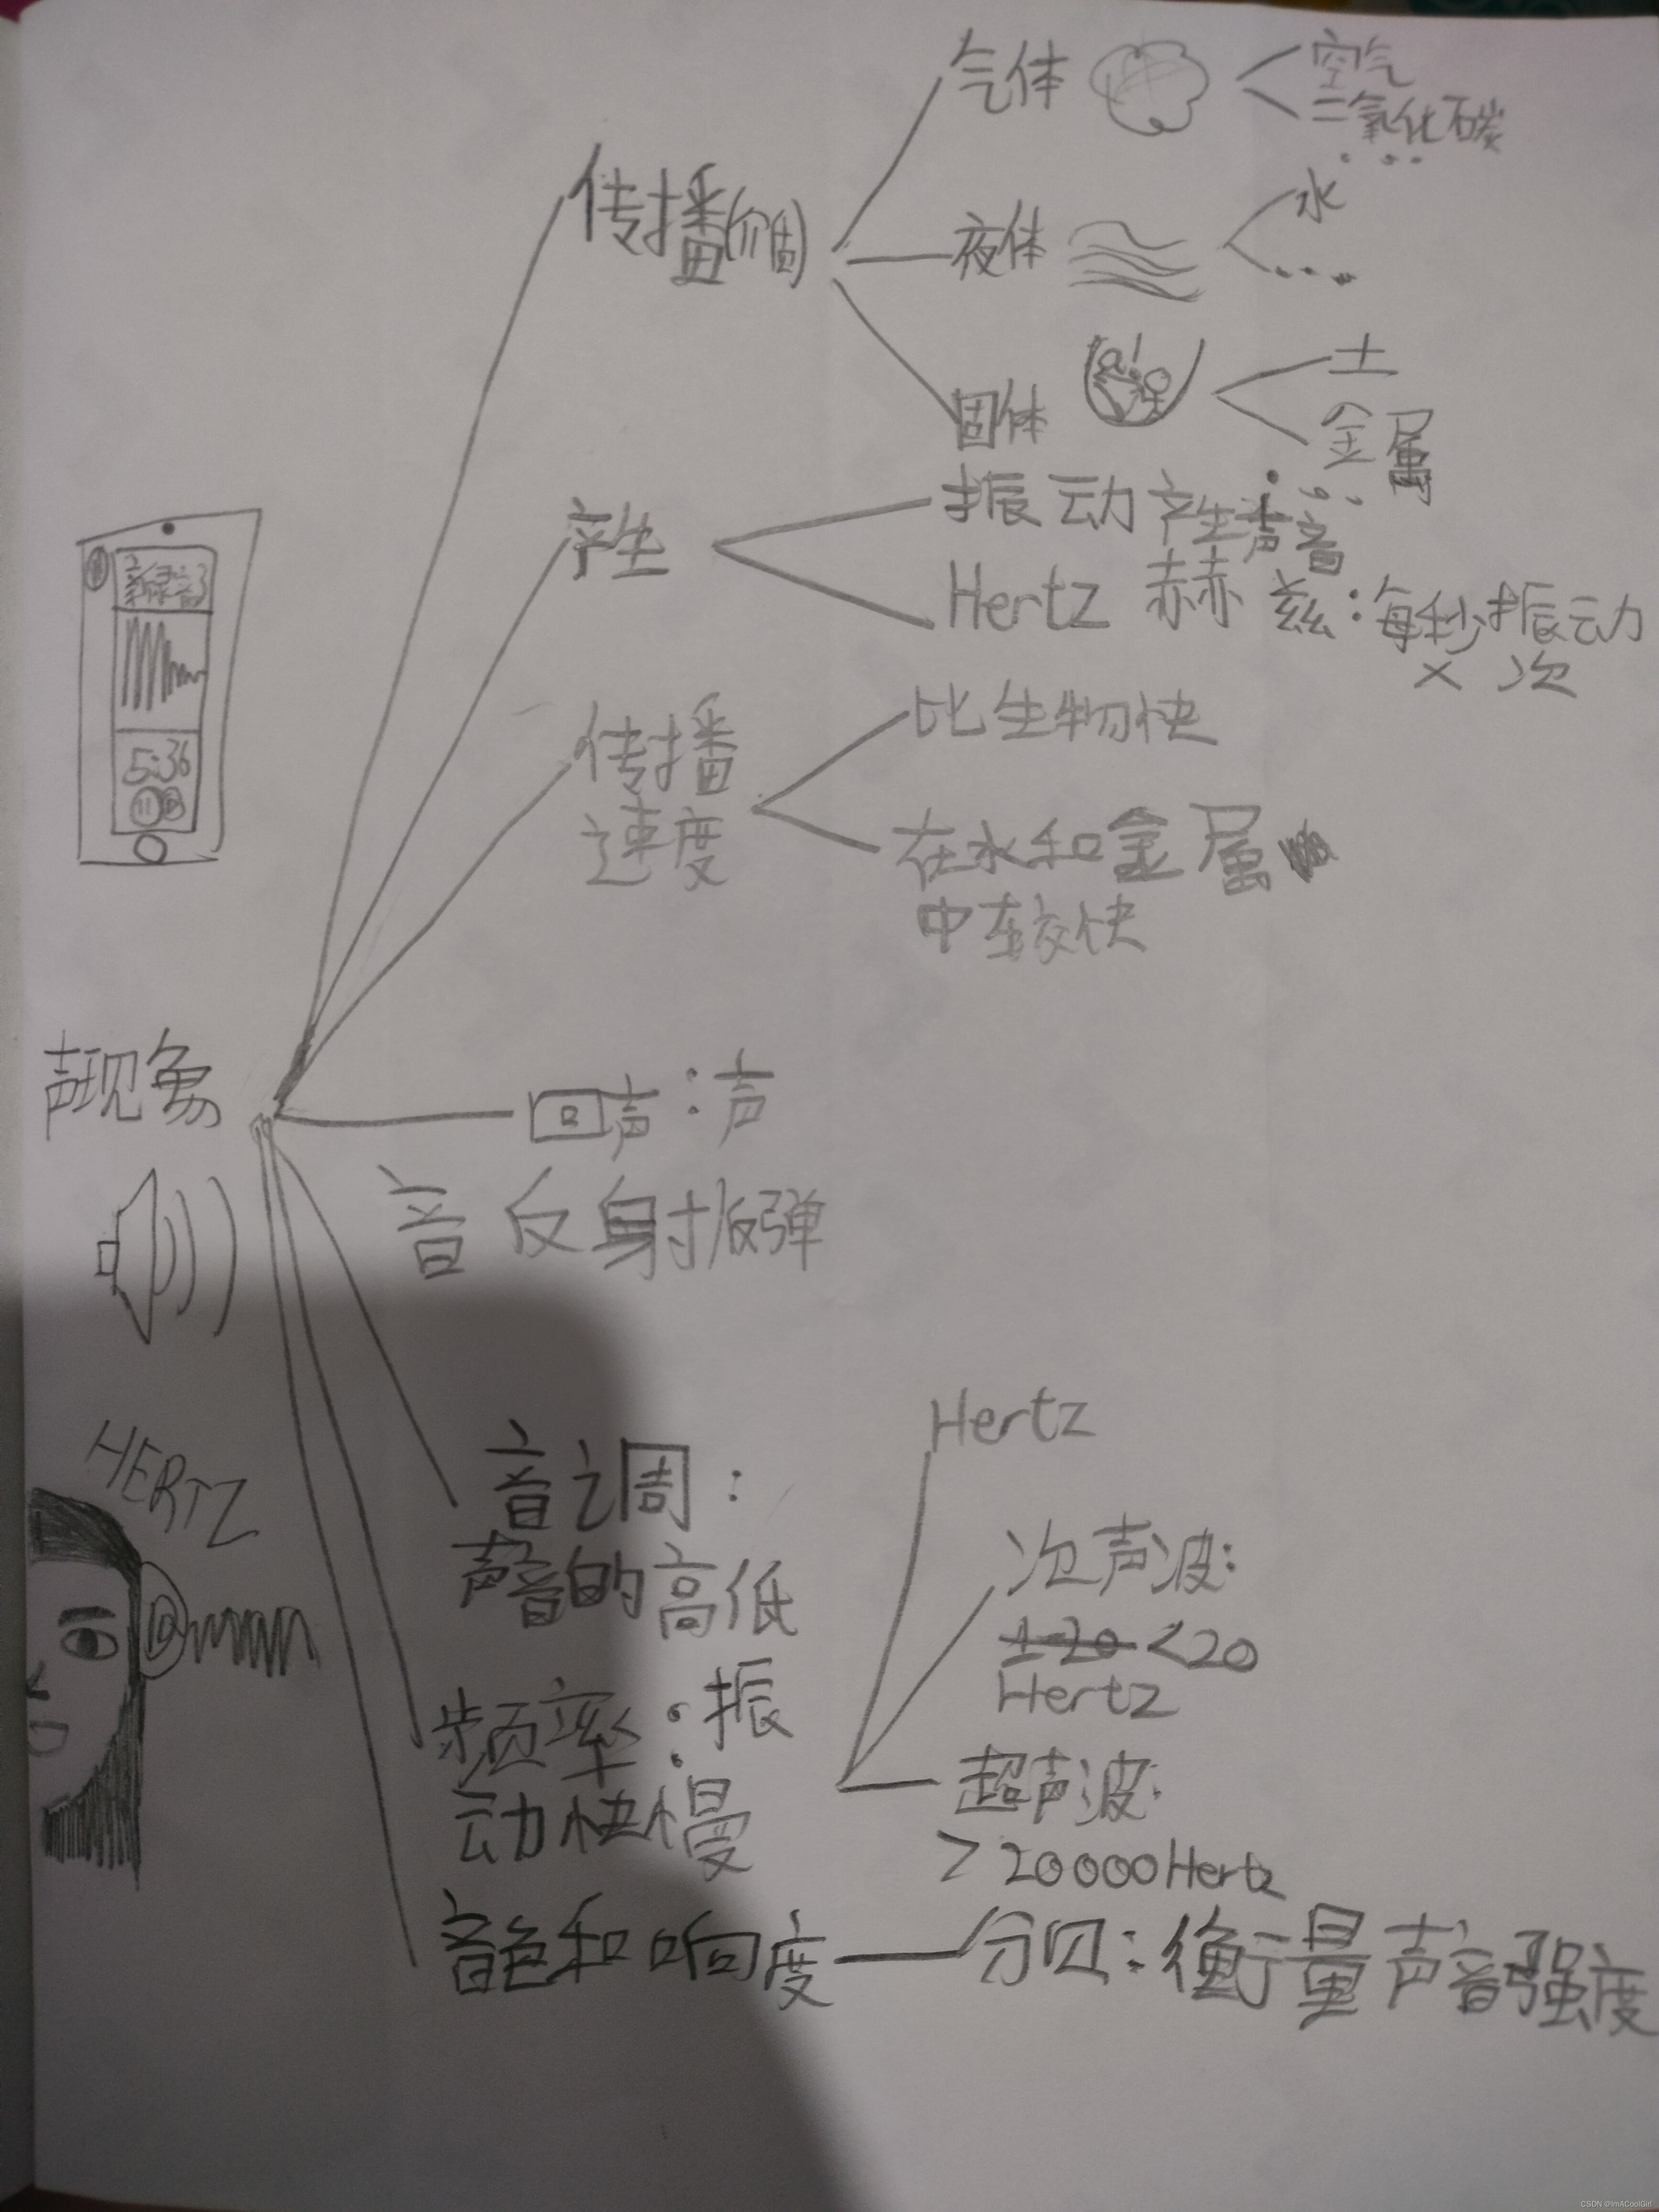 气体
空气
二氧化碳
传播(介质)
夜体
水
固体
土
金属
产生
振动产生声音
Hertz 赫兹:每秒振动
×次
新录音3
5:36
传播
速度
比生物快
在水和金属
中较快
声现象
回声:声
音反射扳弹
HERTZ
音调:
声音的高低
频率:振
动快慢
Hertz
次声波:
1-20 <20
Hertz
超声波:
>20000Hertz
音色和响度
分贝:衡量声音强度
CSDN @ImACoolGirl